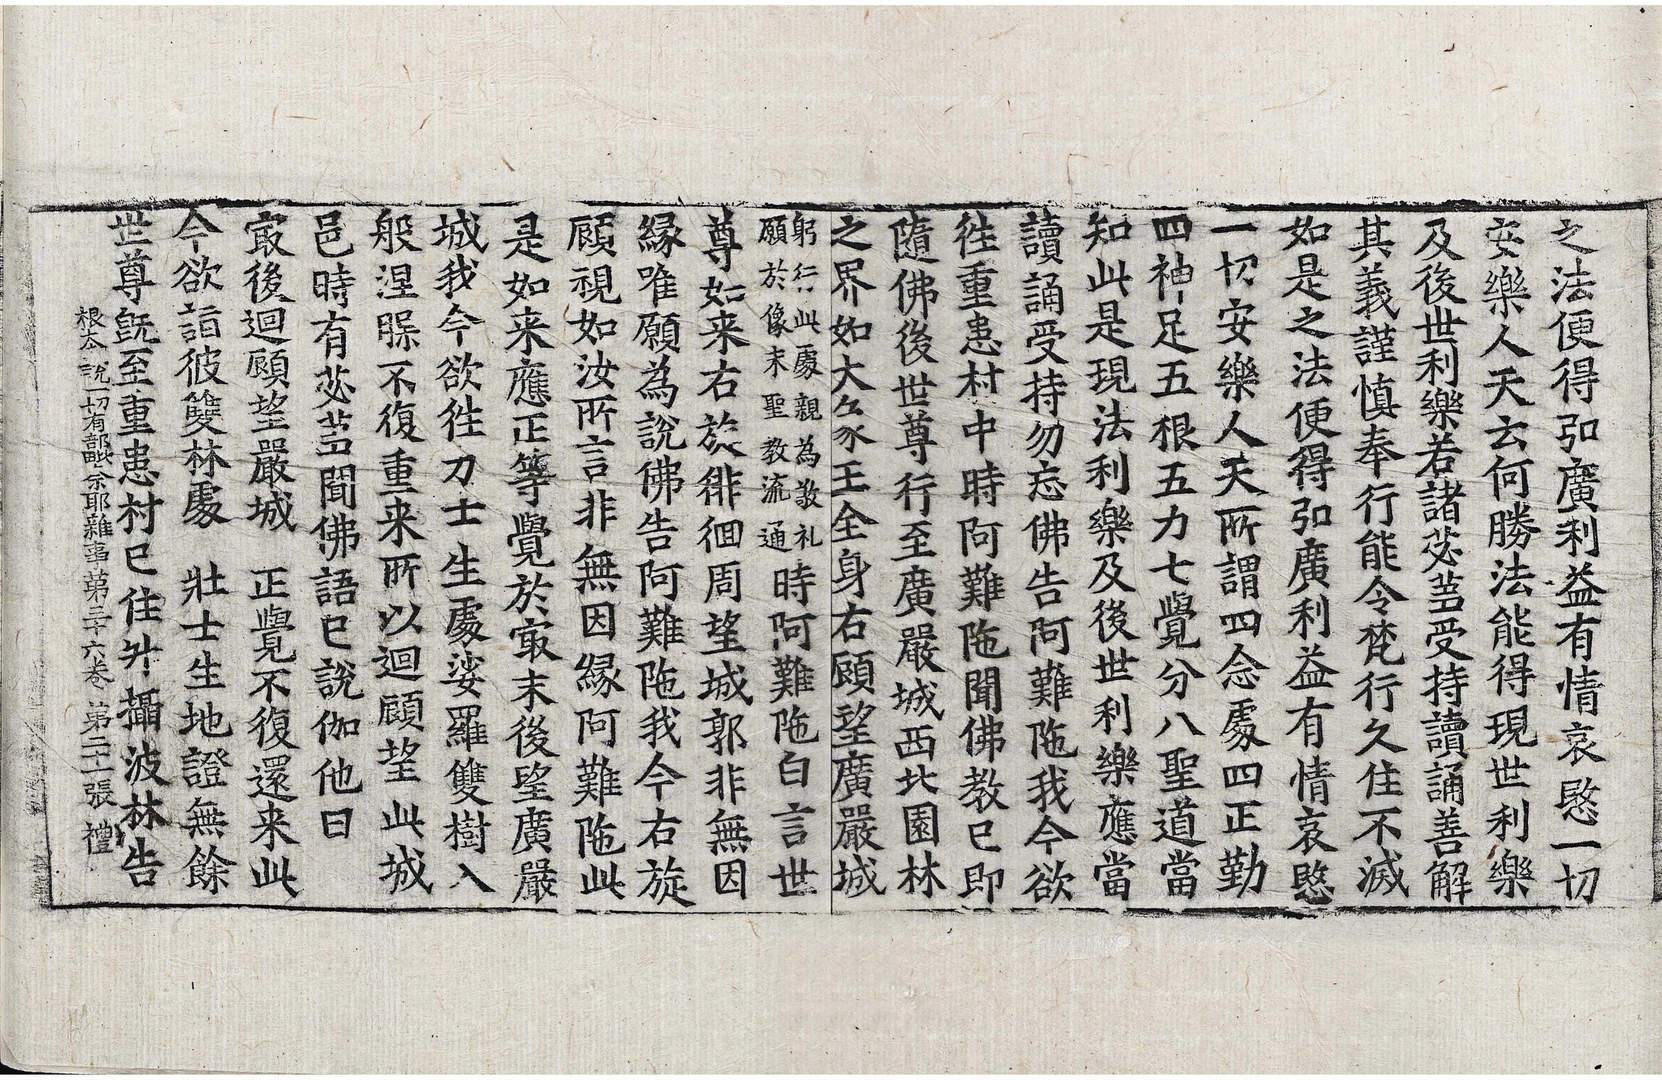 之法便得弘廣利益有情哀愍一切
安樂人天云何勝法能得現世利樂
及後世利樂若諸苾芻受持讀誦善解
其義謹慎奉行能令梵行久住不滅
如是之法便得弘廣利益有情哀愍
一切安樂人天所謂四念處四正勤
四神足五根五力七覺分八聖道當
知此是現法利樂及後世利樂應當
讀誦受持勿忘佛告阿難陁我今欲
徃重患村中時阿難陁聞佛教已即
隨佛後世尊行至廣嚴城西北園林
之界如大象王全身右顧望廣嚴城
躬行此處親為敬礼
願於像末聖教流通
時阿難陁白言世
尊如来右旋徘徊周望城郭非無因
緣唯願為說佛告阿難陁我今右旋
顧視如汝所言非無因緣阿難陁此
是如来應正等覺於冣末後望廣嚴
城我今欲徃力士生處娑羅雙樹入
般涅槃不復重来所以迴顧望此城
邑時有苾芻聞佛語已說伽他曰
冣後迴顧望嚴城　正覺不復還来此
今欲詣彼雙林處　壯士生地證無餘
世尊旣至重患村已住升攝波林告
根本說一切有部毗奈耶雜事第三十六卷　第二十一張　禮